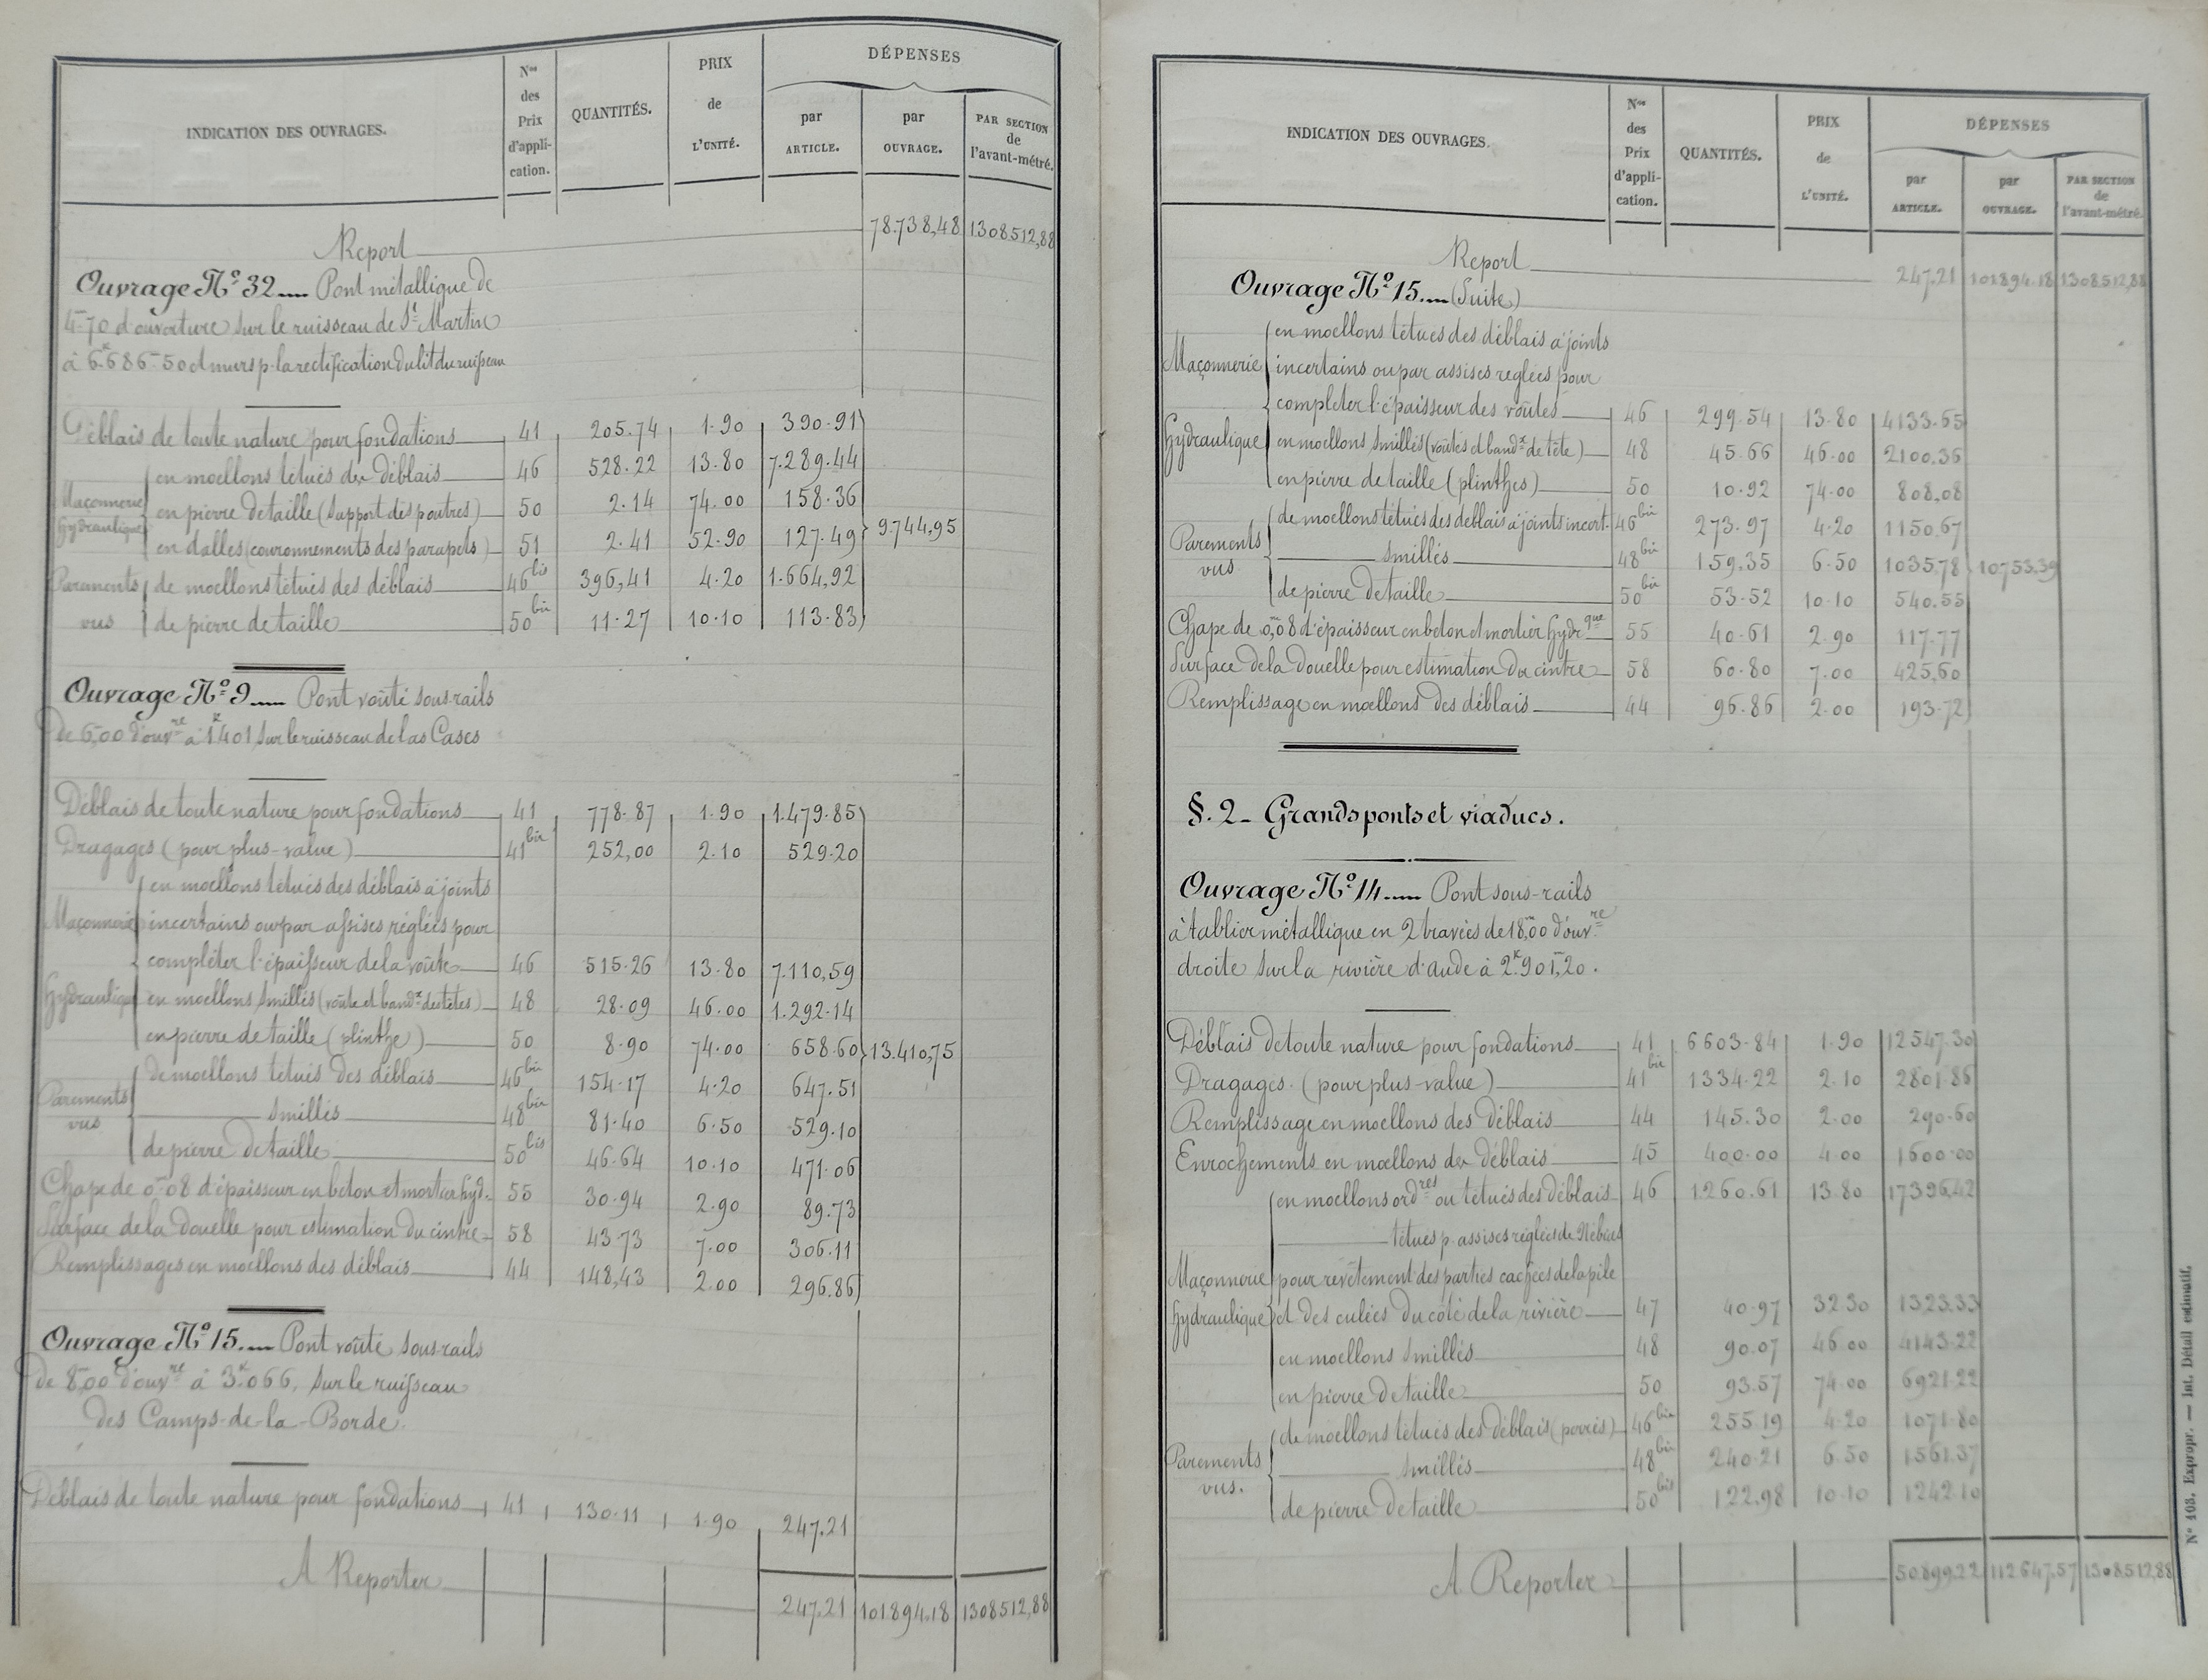 INDICATION DES OUVRAGES.
Nos des Prix d'appli-cation.
QUANTITÉS.
PRIX de L'UNITÉ.
DÉPENSES
par ARTICLE.
par OUVRAGE.
PAR SECTION de l'avant-métré.
Report 78.738,48 1308512,88
Ouvrage No 32.... Pont métallique de
4m70 d'ouverture sur le ruisseau de St Martin
à 6k686m50 et murs p. la rectification du lit du ruisseau
Déblais de toute nature pour fondations 41 205.74 1.90 390.91
Maçonnerie hydraulique
en moellons têtués des déblais 46 528.22 13.80 7.289.44
en pierre de taille (support des poutres) 50 2.14 74.00 158.36
en dalles (couronnements des parapets) 51 2.41 52.90 127.49 9.744,95
Parements vus
de moellons têtués des déblais 46bis 396,41 4.20 1.664,92
de pierre de taille 50bis 11.27 10.10 113.83
Ouvrage No 9.... Pont voûté sous-rails
de 6m,00 d'ouvre à 1k401 sur le ruisseau de las Cases
Déblais de toute nature pour fondations 41 778.87 1.90 1.479.85
Dragages (pour plus-value) 41bis 252,00 2.10 529.20
Maçonnerie Hydraulique
en moellons têtués des déblais à joints
incertains ou par assises réglées pour
compléter l'épaisseur de la voûte 46 515.26 13.80 7.110,59
en moellons smillés (voûte et bandx des têtes) 48 28.09 46.00 1.292.14
en pierre de taille (plinthe) 50 8.90 74.00 658.60 13.410,75
Parements vus
de moellons têtués des déblais 46bis 154.17 4.20 647.51
smillés 48bis 81.40 6.50 529.10
de pierre de taille 50bis 46.64 10.10 471.06
Chape de 0m08 d'épaisseur en béton et mortier hyd. 55 30.94 2.90 89.73
Surface de la douelle pour estimation du cintre 58 43.73 7.00 306.11
Remplissages en moellons des déblais 44 148,43 2.00 296.86
Ouvrage No 15.... Pont voûté sous-rails
de 8m00 d'ouvre à 3k.066, sur le ruisseau
des Camps-de-la-Borde.
Déblais de toute nature pour fondations 41 130.11 1.90 247.21
A Reporter 247.21 101894.18 1308512,88
INDICATION DES OUVRAGES.
Nos des Prix d'appli-cation.
QUANTITÉS.
PRIX de L'UNITÉ.
DÉPENSES
par ARTICLE.
par OUVRAGE.
PAR SECTION de l'avant-métré.
Report 247.21 101894.18 1308512,88
Ouvrage No 15.... (Suite)
Maçonnerie Hydraulique
en moellons têtués des déblais à joints
incertains ou par assises réglées pour
compléter l'épaisseur des voûtes 46 299.54 13.80 4133.65
en moellons smillés (voûtes et bandx de tête) 48 45.66 46.00 2100.36
en pierre de taille (plinthes) 50 10.92 74.00 808,08
Parements vus
de moellons têtués des déblais à joints incert. 46bis 273.97 4.20 1150.67
smillés 48bis 159.35 6.50 1035.78 10753.39
de pierre de taille 50bis 53.52 10.10 540.55
Chape de 0m,08 d'épaisseur en béton et mortier hydrque 55 40.61 2.90 117.77
Surface de la douelle pour estimation du cintre 58 60.80 7.00 425,60
Remplissage en moellons des déblais 44 96.86 2.00 193.72
§. 2_ Grands ponts et viaducs.
Ouvrage No 14.... Pont sous-rails
à tablier métallique en 2 travées de 18m,00 d'ouvre
droite sur la rivière d'aude à 2k.901m,20.
Déblais de toute nature pour fondations 41 6603.84 1.90 12547.30
Dragages. (pour plus-value) 41bis 1334.22 2.10 2801.86
Remplissage en moellons des déblais 44 145.30 2.00 290.60
Enrochements en moellons des déblais 45 400.00 4.00 1600.00
Maçonnerie hydraulique
en moellons ordres ou têtués des déblais 46 1260.61 13.80 17396,42
têtués p. assises réglées de Nébias
pour revêtement des parties cachées de la pile
et des culées du côté de la rivière 47 40.97 32.30 1323.33
en moellons smillés 48 90.07 46.00 4143.22
en pierre de taille 50 93.57 74.00 6921.22
Parements vus.
de moellons têtués des déblais (perrés) 46bis 255.19 4.20 1071.80
smillés 48bis 240.21 6.50 1561.37
de pierre de taille 50bis 122.98 10.10 1242.10
A Reporter 50899.22 112647.57 1308512,88
No 103. Expropr. — Int. Détail estimatif.